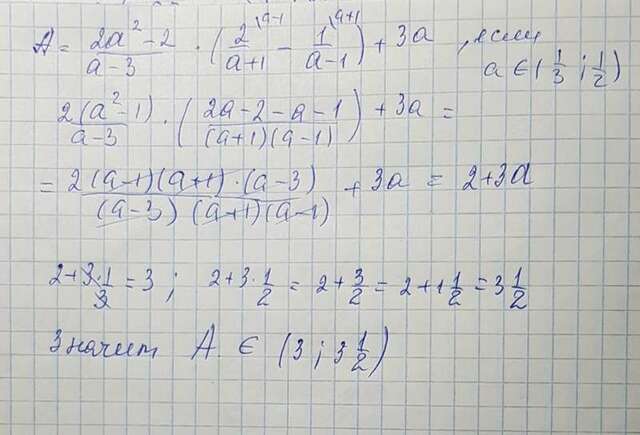 A = \frac{2a^2-2}{a-3} \cdot \left( \frac{2^{\backslash a-1}}{a+1} - \frac{1^{\backslash a+1}}{a-1} \right) + 3a , если
a \in ( \frac{1}{3} ; \frac{1}{2} )
\frac{2(a^2-1)}{a-3} \cdot \left( \frac{2a-2-a-1}{(a+1)(a-1)} \right) + 3a =
= \frac{2(a-1)(a+1) \cdot (a-3)}{(a-3)(a+1)(a-1)} + 3a = 2+3a
2+\frac{3 \cdot 1}{3} = 3 ; 2+3 \cdot \frac{1}{2} = 2+\frac{3}{2} = 2+1\frac{1}{2} = 3\frac{1}{2}
Значит A \in (3 ; 3\frac{1}{2})